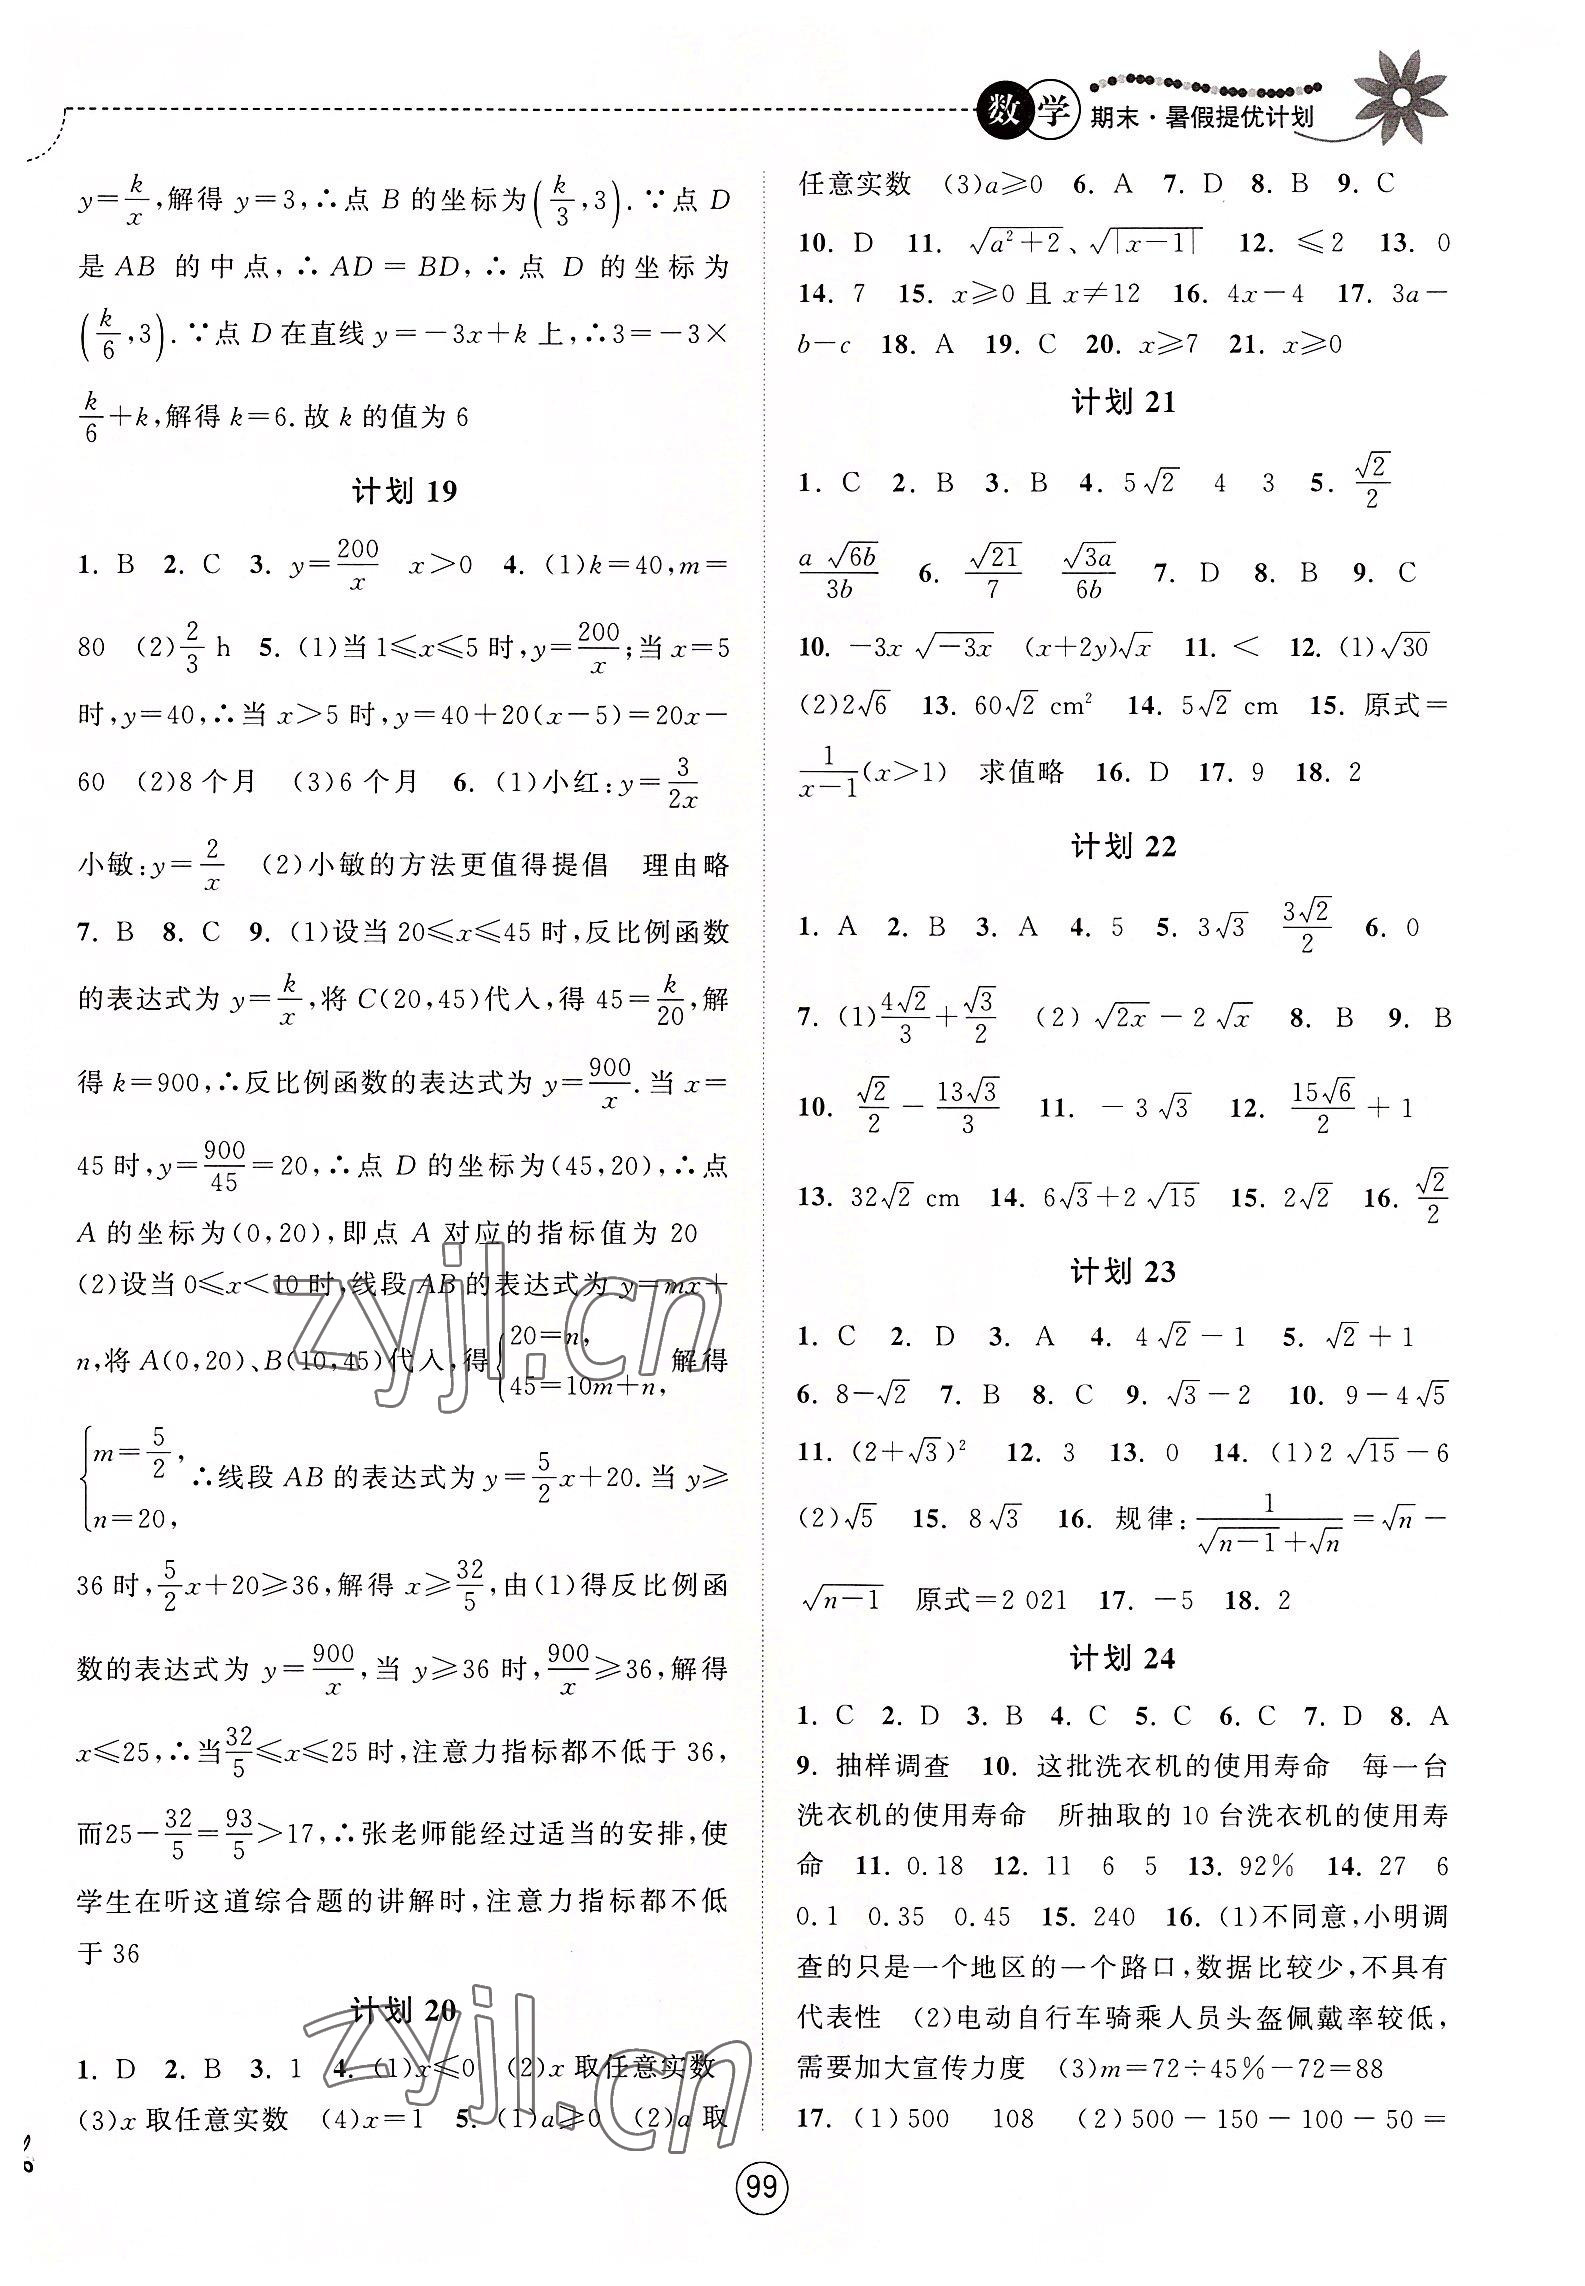 数学 期末·暑假提优计划
y=k/x,解得 y=3,∴点 B 的坐标为(k/3,3).∵点 D
是 AB 的中点,∴AD=BD,∴点 D 的坐标为
(k/6,3).∵点 D 在直线 y=-3x+k 上,∴3=-3×
k/6+k,解得 k=6.故 k 的值为 6
计划 19
1. B 2. C 3. y=200/x x>0 4. (1)k=40,m=
80 (2)2/3 h 5. (1)当 1≤x≤5 时,y=200/x;当 x=5
时,y=40,∴当 x>5 时,y=40+20(x-5)=20x-
60 (2)8 个月 (3)6 个月 6. (1)小红:y=3/2x
小敏:y=2/x (2)小敏的方法更值得提倡 理由略
7. B 8. C 9. (1)设当 20≤x≤45 时,反比例函数
的表达式为 y=k/x,将 C(20,45)代入,得 45=k/20,解
得 k=900,∴反比例函数的表达式为 y=900/x.当 x=
45 时,y=900/45=20,∴点 D 的坐标为(45,20),∴点
A 的坐标为(0,20),即点 A 对应的指标值为 20
(2)设当 0≤x<10 时,线段 AB 的表达式为 y=mx+
n,将 A(0,20)、B(10,45)代入,得{20=n, 45=10m+n, 解得
{m=5/2, n=20, ∴线段 AB 的表达式为 y=5/2x+20.当 y≥
36 时,5/2x+20≥36,解得 x≥32/5,由(1)得反比例函
数的表达式为 y=900/x,当 y≥36 时,900/x≥36,解得
x≤25,∴当32/5≤x≤25 时,注意力指标都不低于 36,
而25-32/5=93/5>17,∴张老师能经过适当的安排,使
学生在听这道综合题的讲解时,注意力指标都不低
于 36
计划 20
1. D 2. B 3. 1 4. (1)x≤0 (2)x 取任意实数
(3)x 取任意实数 (4)x=1 5. (1)a≥0 (2)a 取
任意实数 (3)a≥0 6. A 7. D 8. B 9. C
10. D 11. √(a²+2)、√|x-1| 12. ≤2 13. 0
14. 7 15. x≥0 且 x≠12 16. 4x-4 17. 3a-
b-c 18. A 19. C 20. x≥7 21. x≥0
计划 21
1. C 2. B 3. B 4. 5√2 4 3 5. √2/2
a√(6b)/3b 6. √21/7 √(3a)/6b 7. D 8. B 9. C
10. -3x√(-3x) (x+2y)√x 11. < 12. (1)√30
(2)2√6 13. 60√2 cm² 14. 5√2 cm 15. 原式=
1/(x-1)(x>1) 求值略 16. D 17. 9 18. 2
计划 22
1. A 2. B 3. A 4. 5 5. 3√3 3√2/2 6. 0
7. (1)4√2/3+√3/2 (2)√(2x)-2√x 8. B 9. B
10. √2/2-13√3/3 11. -3√3 12. 15√6/2+1
13. 32√2 cm 14. 6√3+2√15 15. 2√2 16. √2/2
计划 23
1. C 2. D 3. A 4. 4√2-1 5. √2+1
6. 8-√2 7. B 8. C 9. √3-2 10. 9-4√5
11. (2+√3)² 12. 3 13. 0 14. (1)2√15-6
(2)√5 15. 8√3 16. 规律:1/(√(n-1)+√n)=√n-
√(n-1) 原式=2 021 17. -5 18. 2
计划 24
1. C 2. D 3. B 4. C 5. C 6. C 7. D 8. A
9. 抽样调查 10. 这批洗衣机的使用寿命 每一台
洗衣机的使用寿命 所抽取的 10 台洗衣机的使用寿
命 11. 0.18 12. 11 6 5 13. 92% 14. 27 6
0.1 0.35 0.45 15. 240 16. (1)不同意,小明调
查的只是一个地区的一个路口,数据比较少,不具有
代表性 (2)电动自行车骑乘人员头盔佩戴率较低,
需要加大宣传力度 (3)m=72÷45%-72=88
17. (1)500 108 (2)500-150-100-50=
99
zyjl.cn
zyjl.cn